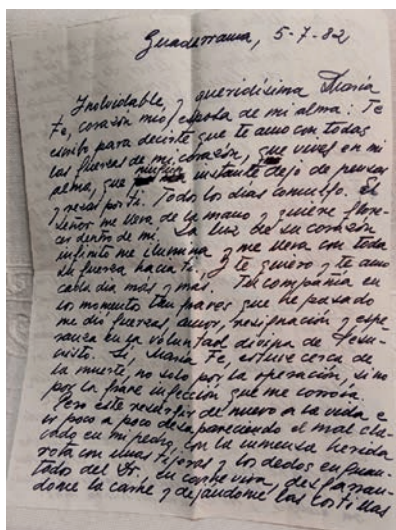 Guadarrama, 5-7-82
Inolvidable, y queridísima María
Fe, corazón mío, esposa de mi alma: Te
escribo para decirte que te amo con todas
las fuerzas de mi corazón, que vives en mi
alma, que ningún instante dejo de pensar
y rezar por ti. Todos los días comulgo. El
Señor me lleva de la mano y quiere flore-
cer dentro de mí. La luz de su corazón
infinito me ilumina y me lleva con toda
su fuerza hacia ti, y te quiero y te amo
cada día más y más. Tu compañía en
los momentos tan graves que he pasado
me dió fuerzas, amor, resignación y espe-
ranza en la voluntad divina de Jesu-
cristo. Sí, María Fe, estuve cerca de
la muerte, no solo por la operación, sino
por la grave infección que me corroía.
Pero este resurgir de nuevo a la vida e
ir poco a poco desapareciendo el mal cla-
vado en mi pecho, con la inmensa herida
rota con unas tijeras y los dedos enguan-
tados del Dr. en carne viva, desgarran-
dome la carne y dejándome las costillas